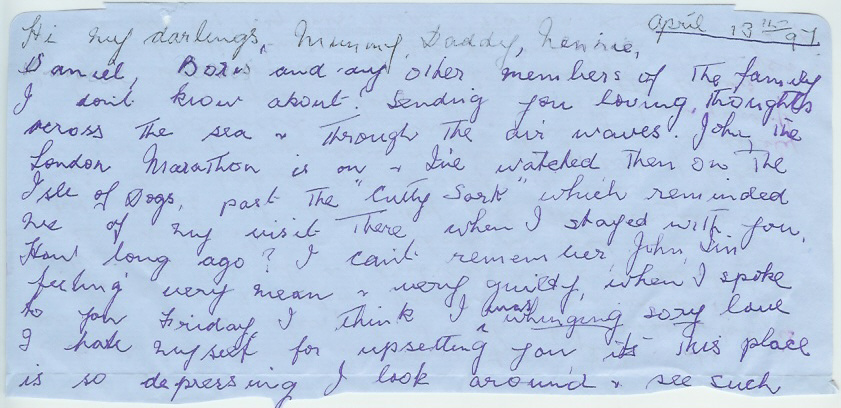 April 13th 97
Hi my darlings, Mummy, Daddy,
Daniel, Boris and any other members of the family
I don't know about. Sending you loving thoughts
across the sea & through the air waves. John, the
London Marathon is on & I've watched them on the
Isle of Dogs, past the "Cutty Sark" which reminded
me of my visit there when I stayed with you.
How long ago? I can't remember, John, I'm
feeling very mean & very guilty, when I spoke
to you Friday I think I was whinging sory love
I hate myself for upsetting you, its this place
is so depressing I look around & see such